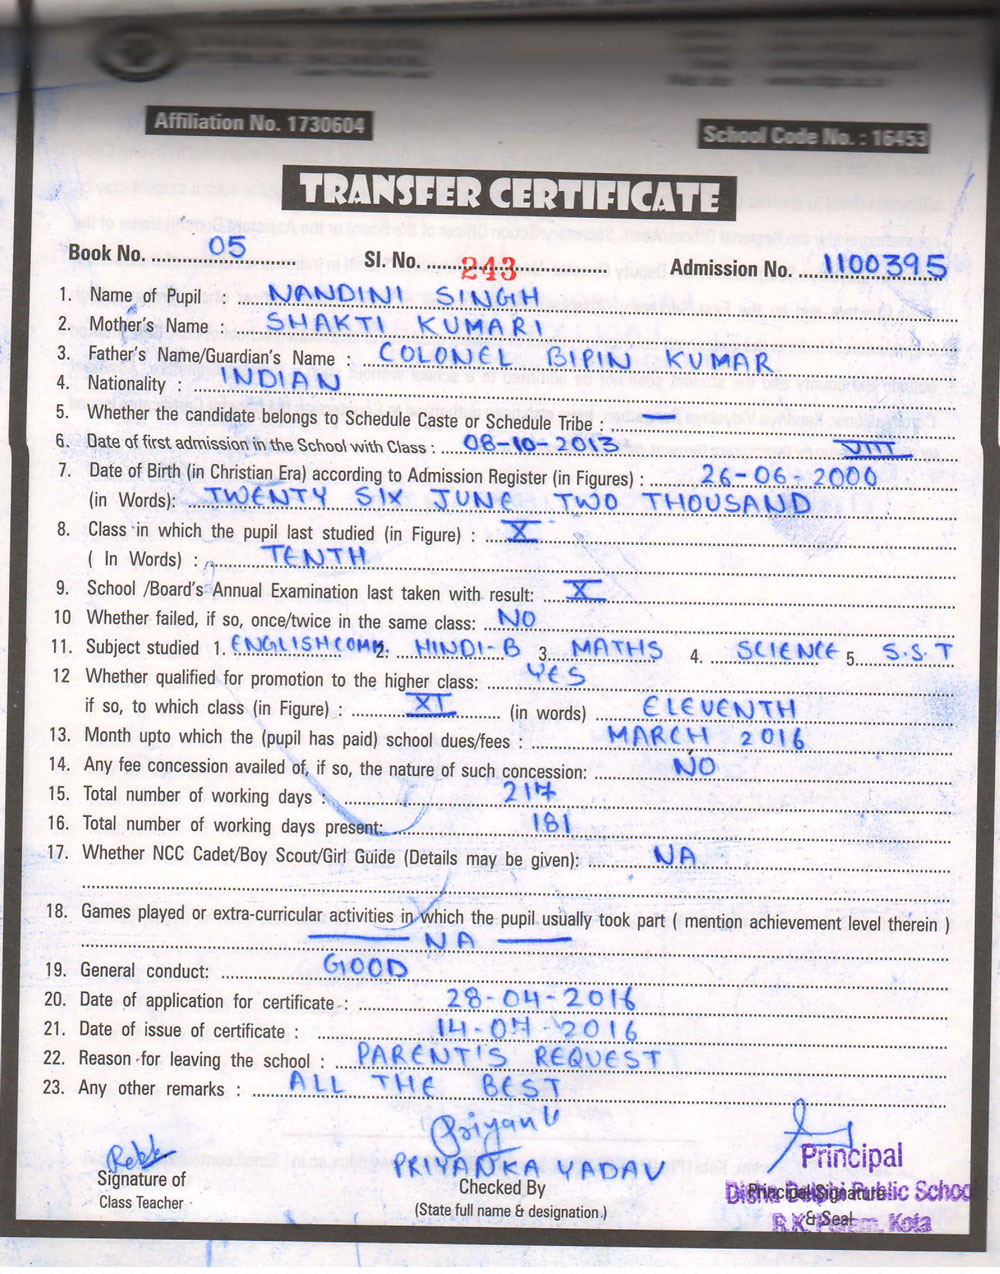 Affiliation No. 1730604
School Code No. : 16453
TRANSFER CERTIFICATE
Book No. 05 Sl. No. 243 Admission No. 1100395
1. Name of Pupil : NANDINI SINGH
2. Mother's Name : SHAKTI KUMARI
3. Father's Name/Guardian's Name : COLONEL BIPIN KUMAR
4. Nationality : INDIAN
5. Whether the candidate belongs to Schedule Caste or Schedule Tribe : —
6. Date of first admission in the School with Class : 08-10-2013 VIII
7. Date of Birth (in Christian Era) according to Admission Register (in Figures) : 26-06-2000
(in Words): TWENTY SIX JUNE TWO THOUSAND
8. Class in which the pupil last studied (in Figure) : X
( In Words) : TENTH
9. School /Board's Annual Examination last taken with result: X
10 Whether failed, if so, once/twice in the same class: NO
11. Subject studied 1. ENGLISH COMM. 2. HINDI-B 3. MATHS 4. SCIENCE 5. S.S.T
12 Whether qualified for promotion to the higher class: YES
if so, to which class (in Figure) : XI (in words) ELEVENTH
13. Month upto which the (pupil has paid) school dues/fees : MARCH 2016
14. Any fee concession availed of, if so, the nature of such concession: NO
15. Total number of working days : 217
16. Total number of working days present: 181
17. Whether NCC Cadet/Boy Scout/Girl Guide (Details may be given): NA
18. Games played or extra-curricular activities in which the pupil usually took part ( mention achievement level therein )
— NA —
19. General conduct: GOOD
20. Date of application for certificate : 28-04-2016
21. Date of issue of certificate : 14-07-2016
22. Reason for leaving the school : PARENT'S REQUEST
23. Any other remarks : ALL THE BEST
PRIYANKA YADAV
Principal
Signature of
Class Teacher
Checked By
(State full name & designation )
Principal Signature
& Seal
Disha Delphi Public School
R.K. Puram, Kota